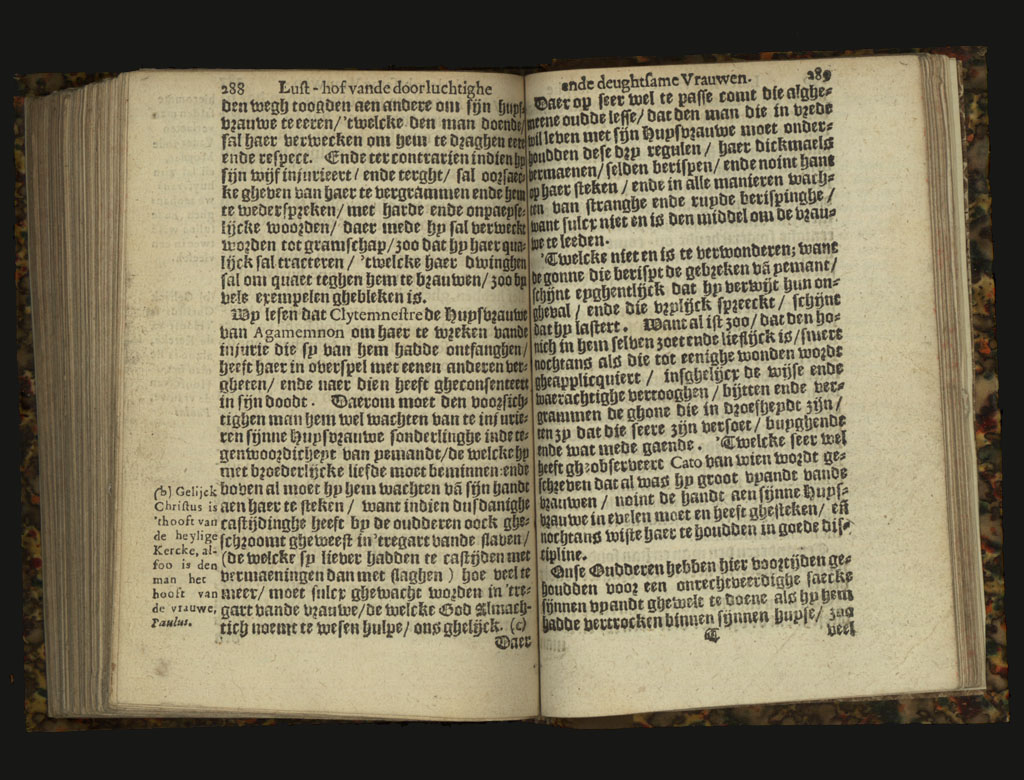 288 Lust-hof vande doorluchtighe
den wegh toogden aen andere om sijn huys-
vrauwe te eeren/ 'twelcke den man doende/
sal haer verwecken om hem te draghen eere
ende respect. Ende ter contrarien indien hy
sijn wijf injurieert/ ende terght/ sal oorsaec-
ke gheven van haer te vergrammen ende hem
te wederspreken/ met harde ende onpaeyse-
lijcke woorden/ daer mede hy sal verweckt
worden tot gramschap/ zoo dat hy haer qua-
lijck sal tracteren/ 'twelcke haer dwinghen
sal om quaet teghen hem te brauwen/ zoo by
vele exempelen ghebleken is.
Wy lesen dat Clytemnestre de Huysvrauwe
van Agamemnon om haer te wreken vande
injurie die sy van hem hadde ontfanghen/
heeft haer in overspel met eenen anderen ver-
gheten/ ende naer dien heeft gheconsenteert
in sijn doodt. Daerom moet den voorsich-
tighen man hem wel wachten van te injurie-
ren sijnne Huysvrauwe sonderlinghe inde te-
genwoordicheyt van yemandt/ de welcke hy
met broederlijcke liefde moet beminnen: ende
boven al moet hy hem wachten vā sijn handt
aen haer te steken/ want indien dusdanighe
castijdinghe heeft by de oudderen oock ghe-
schroomt gheweest in 'tregart vande slaven/
(de welcke sy liever hadden te castijden met
vermaeningen dan met slaghen) hoe veel te
meer/ moet sulcx ghewacht worden in 'tre-
gart vande vrauwe/ de welcke God Almach-
tich noemt te wesen hulpe/ ons ghelijck. (c)
Daer
(b) Gelijck
Christus is
'thooft van
de heylige
Kercke, al-
soo is den
man het
hooft van
de vrauwe,
Paulus.
ende deughtsame Vrauwen. 289
Daer op seer wel te passe comt die alghe-
meene oudde lesse/ dat den man die in vrede
wil leven met sijn Huysvrauwe moet onder-
houdden dese dry regulen/ haer dickmaels
vermaenen/ selden berispen/ ende noint hant
op haer steken/ ende in alle manieren wach-
ten van stranghe ende ruyde berispinghe/
want sulcx niet en is den middel om de vrau-
we te leeden.
'Twelcke niet en is te verwonderen; want
de gonne die berispt de gebreken vā yemant/
schijnt eyghentlijck dat hy verwijt hun on-
gheval/ ende die vrylijck spreeckt/ schijnt
dat hy lastert. Want al ist zoo/ dat den ho-
nich in hem selven zoet ende lieflijck is/ smert
nochtans als die tot eenighe wonden wordt
gheapplicquiert/ insghelijcx de wijse ende
waerachtighe vertooghen/ bijtten ende ver-
grammen de ghone die in droefheydt zijn/
ten zy dat die seere zijn versoet/ buyghende
ende wat mede gaende. 'Twelcke seer wel
heeft gheobserveert Cato van wien wordt ge-
schreven dat al was hy groot vyandt vande
vrauwen/ noint de handt aen sijnne Huys-
vrauwe in evelen moet en heeft ghesteken/ eñ
nochtans wiste haer te houdden in goede dis-
cipline.
Onse Oudderen hebben hier voortijden ge-
houdden voor een onrechveerdighe saecke
sijnnen vyandt ghewelt te doene als hy hem
hadde vertrocken binnen sijnnen huyse/ zoo
T veel